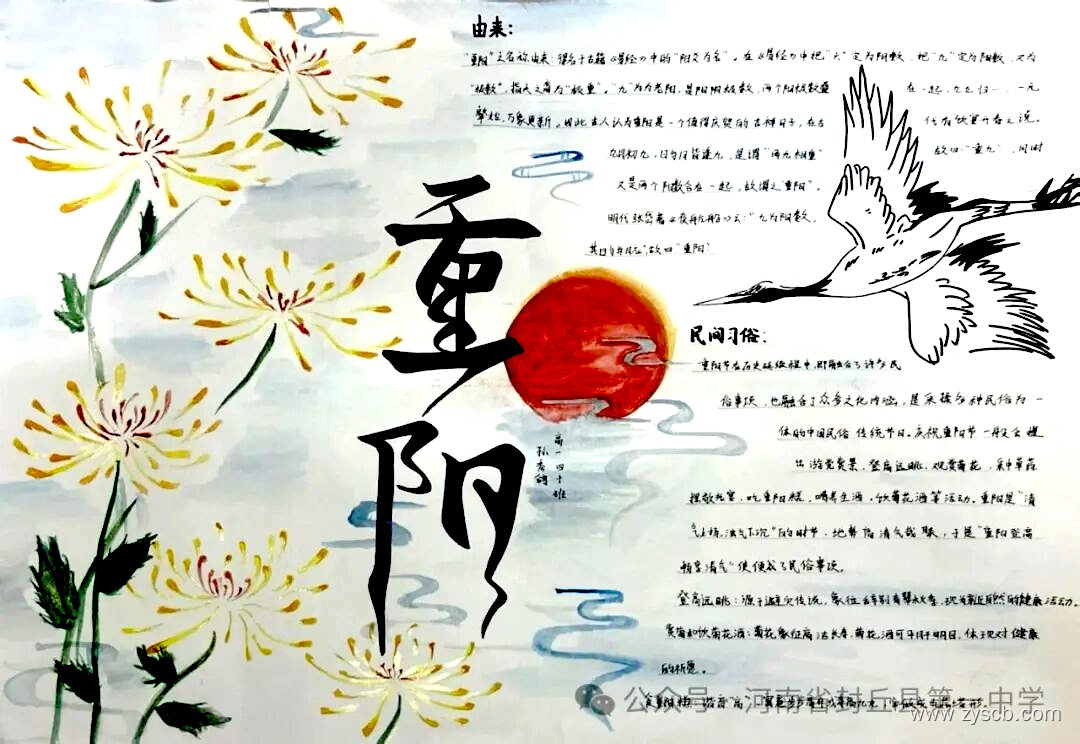 由来：
"重阳"之名称由来：得名于古籍《易经》中的"阳爻为九"。在《易经》中把"六"定为阴数，把"九"定为阳数，又为
"极数"，指天之高为"九重"。"九"为老阳，是阳极数，两个阳极数叠在一起，九九归一，一元
肇始，万象更新。因此古人认为重阳是一个值得庆贺的吉祥日子。在古代有饮宴祈寿之说。
九月初九，日与月皆逢九，是谓"两九相重"故曰"重九"，同时
又是两个阳数合在一起，故谓之"重阳"。
明代张岱著《夜航船》云："九为阳数，
其日与月并应，故曰"重阳"
重阳
高一四十班
孙
民间习俗：
重阳节在历史延续过程中，即融合了许多民
俗事项，也融合了众多文化内涵，是采撷多种民俗为一
体的中国民俗传统节日。庆祝重阳节一般会包
出游赏景，登高远眺，观赏菊花，采中草药
摆敬老宴，吃重阳糕，喝养生酒，饮菊花酒等活动。重阳是"清
气上扬，浊气下沉"的时节，地势高清气
聚，于是"重阳登高
畅享清气"便成了民俗事项。
登高远眺：源于避灾传说，象征
现为亲近自然的健康活动。
赏菊和饮菊花酒：菊花象征高洁长寿，菊花酒可
明目，体现对健康
的祈愿。
食重阳糕
公众号·河南省封丘县第一中学
www.zyscb.com